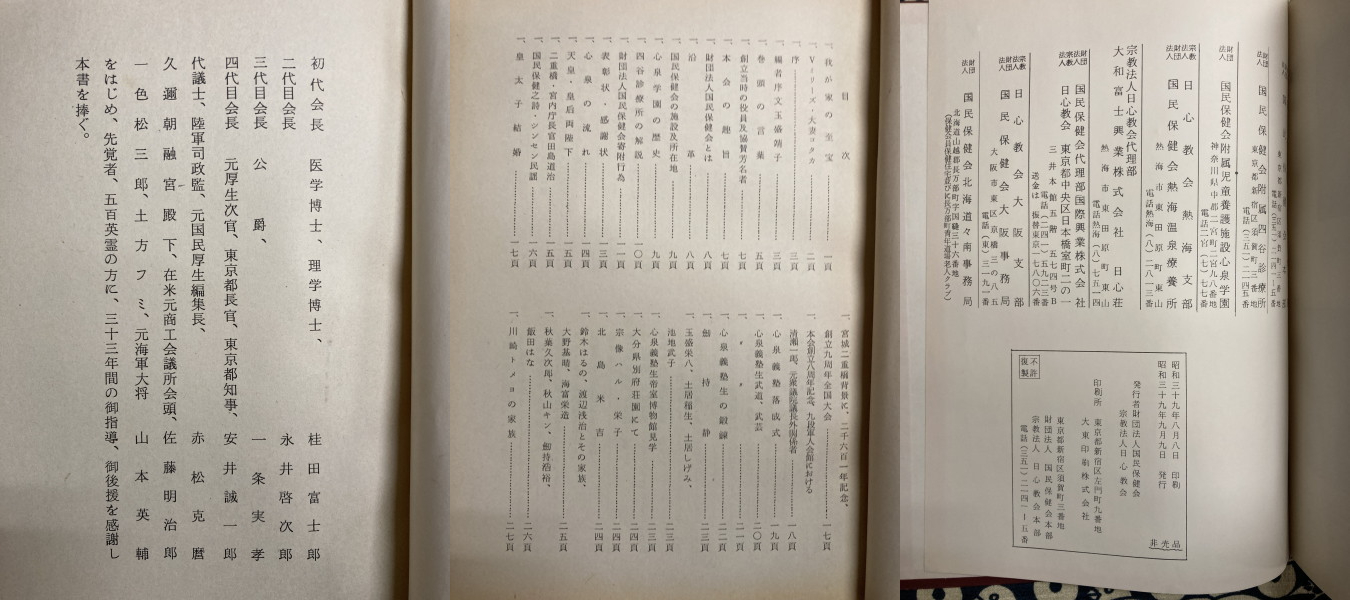 初代会長 医学博士、理学博士、 桂田富士郎
二代目会長 永井啓次郎
三代目会長 公爵、 一条実孝
四代目会長 元厚生次官、東京都長官、東京都知事、 安井誠一郎
代議士、陸軍司政監、元国民厚生編集長、 赤松克麿
久邇朝融宮殿下、在米元商工会議所会頭、 佐藤明治郎
一色松三郎、土方フミ、元海軍大将 山本英輔
をはじめ、先覚者、五百英霊の方に、三十三年間の御指導、御後援を感謝し
本書を捧ぐ。
目次
一、我が家の至宝……一頁
一、Vシリーズ・大妻コタカ……二頁
一、序……三頁
一、編者序文玉盛靖子……三頁
一、巻頭の言葉……五頁
一、創立当時の役員及協賛芳名者……七頁
一、本会の趣旨……七頁
一、財団法人国民保健会とは……八頁
一、沿革……八頁
一、国民保健会の施設及所在地……九頁
一、心泉学園の歴史……九頁
一、四谷診療所の解説……一〇頁
一、財団法人国民保健会寄附行為……一一頁
一、表彰状・感謝状……一三頁
一、心泉の流れ……一四頁
一、天皇・皇后両陛下……一五頁
一、二重橋・宮内庁長官田島道治……一六頁
一、国民保健之詩・シンセン民謡……一六頁
一、皇太子結婚……一七頁
一、宮城二重橋背景に、二千六百一年記念、
創立九周年全国大会……一七頁
一、本会創立八周年記念、九段軍人会館における
清瀬一郎、元衆議院議長外関係者……一八頁
一、心泉義塾落成式……一九頁
一、心泉義塾生武道、武芸……二〇頁
一、〃 〃……二一頁
一、心泉義塾生の鍛錬……二二頁
一、劔持静……二三頁
一、玉盛栄八、土居稲生、土居しげみ、
池地武子……二三頁
一、心泉義塾生帝室博物館見学……二三頁
一、大分県別府荘園にて……二四頁
一、宗像ハル・栄子……二四頁
一、北島米吉……二四頁
一、鈴木はるの、渡辺浅治とその家族、
大野基晴、海富栄造……二五頁
一、秋葉久次郎、秋山キン、劔持浩裕、
飯田はな……二六頁
一、川崎トメヨの家族……二七頁
財団法人 国民保健会附属四谷診療所
東京都新宿区須賀町三番地
電話(三五一)二二四五番
財団法人 国民保健会附属児童養護施設心泉学園
神奈川県中郡二宮町二宮九八番地
電話二宮(七)七七番
宗教法人 日心教会熱海支部
財団法人 国民保健会熱海温泉療養所
熱海市東田原町東山
電話熱海(八)二八一三番
宗教法人日心教会代理部
大和富士興業株式会社 日心荘
熱海市東田原町東山
電話熱海(八)七五一四
財団法人 国民保健会代理部国際興業株式会社
宗教法人 日心教会 東京都中央区日本橋室町二の一
三井本館五階五七四号B
電話(二四一)五九二三番
送金は振替東京一七八〇六番
宗教法人 日心教会大阪支部
財団法人 国民保健会大阪事務局
大阪市東区京橋三の八五
電話(東)三九九一番
財団法人 国民保健会北海道々南事務局
北海道山越郡長万部町字国縫三十六番地
昭和三十九年八月八日 印刷
昭和三十九年九月九日 発行
発行者 財団法人国民保健会
宗教法人日心教会
印刷所 東京都新宿区左門町九番地
大東印刷株式会社
東京都新宿区須賀町三番地
財団法人 国民保健会本部
宗教法人 日心教会本部
電話(三五一)二二四一-五番
不許複製
非売品